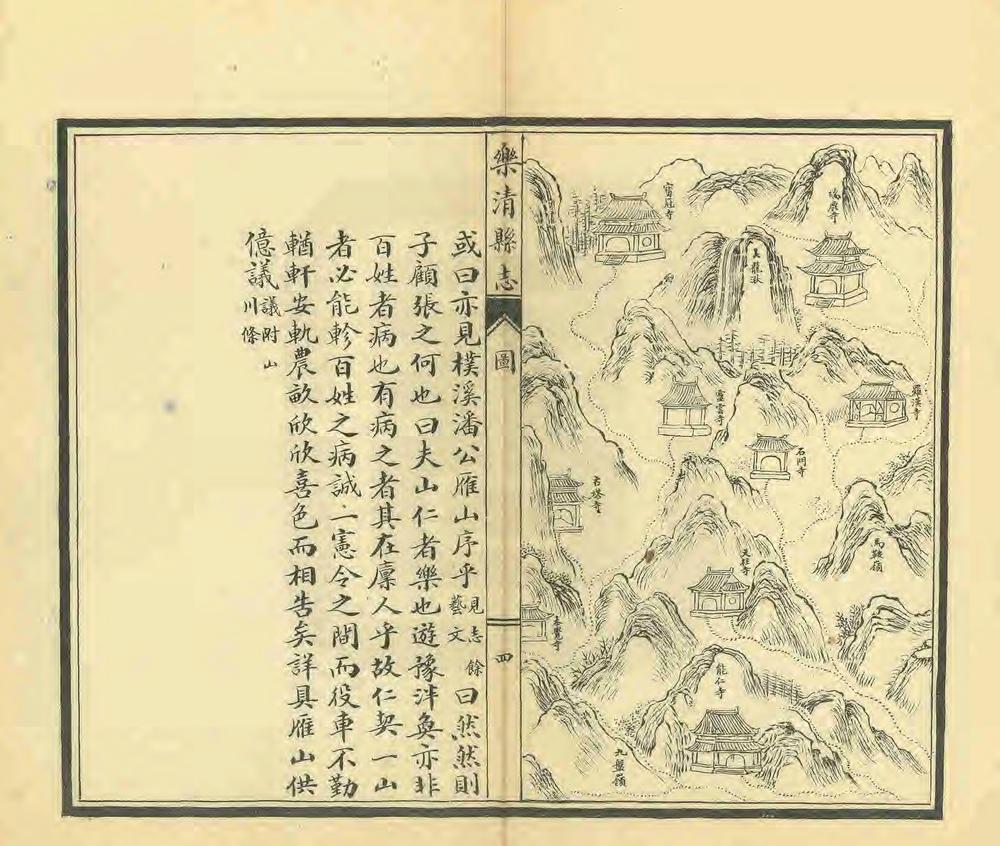 瑞鹿寺
寶冠寺
大龍湫
羅漢寺
靈雲寺
石門寺
古塔寺
馬鞍嶺
天柱寺
本覺寺
能仁寺
九盤嶺
樂清縣志
圖
四
或曰亦見樸溪潘公雁山序乎見藝文志餘曰然然則
子顧張之何也曰夫山仁者樂也遊豫泮奐亦非
百姓者病也有病之者其在廩人乎故仁契一山
者必能軫百姓之病誠一憲令之間而役車不勤
輶軒安軌農畝欣欣喜色而相告矣詳具雁山供
億議議附山川條